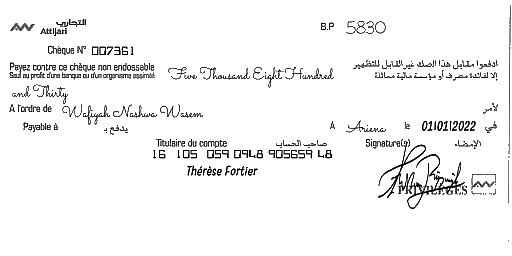 التجاري
Attijari
B.P 5830
Chèque N° 007361
Payez contre ce chèque non endossable
Sauf au profit d'une banque ou d'un organisme assimilé
Five Thousand Eight Hundred
ادفعوا مقابل هذا الصك غير القابل للتظهير
إلا لفائدة مصرف أو مؤسسة مالية مماثلة
and Thirty
A l'ordre de Wafiyah Nashwa Wasem لأمر
Payable à يدفع بـ A Ariena le 01/01/2022 في
Titulaire du compte صاحب الحساب Signature(s) الإمضاء
16 105 059 0948 905659 48
Thérèse Fortier
PRIVILEGES